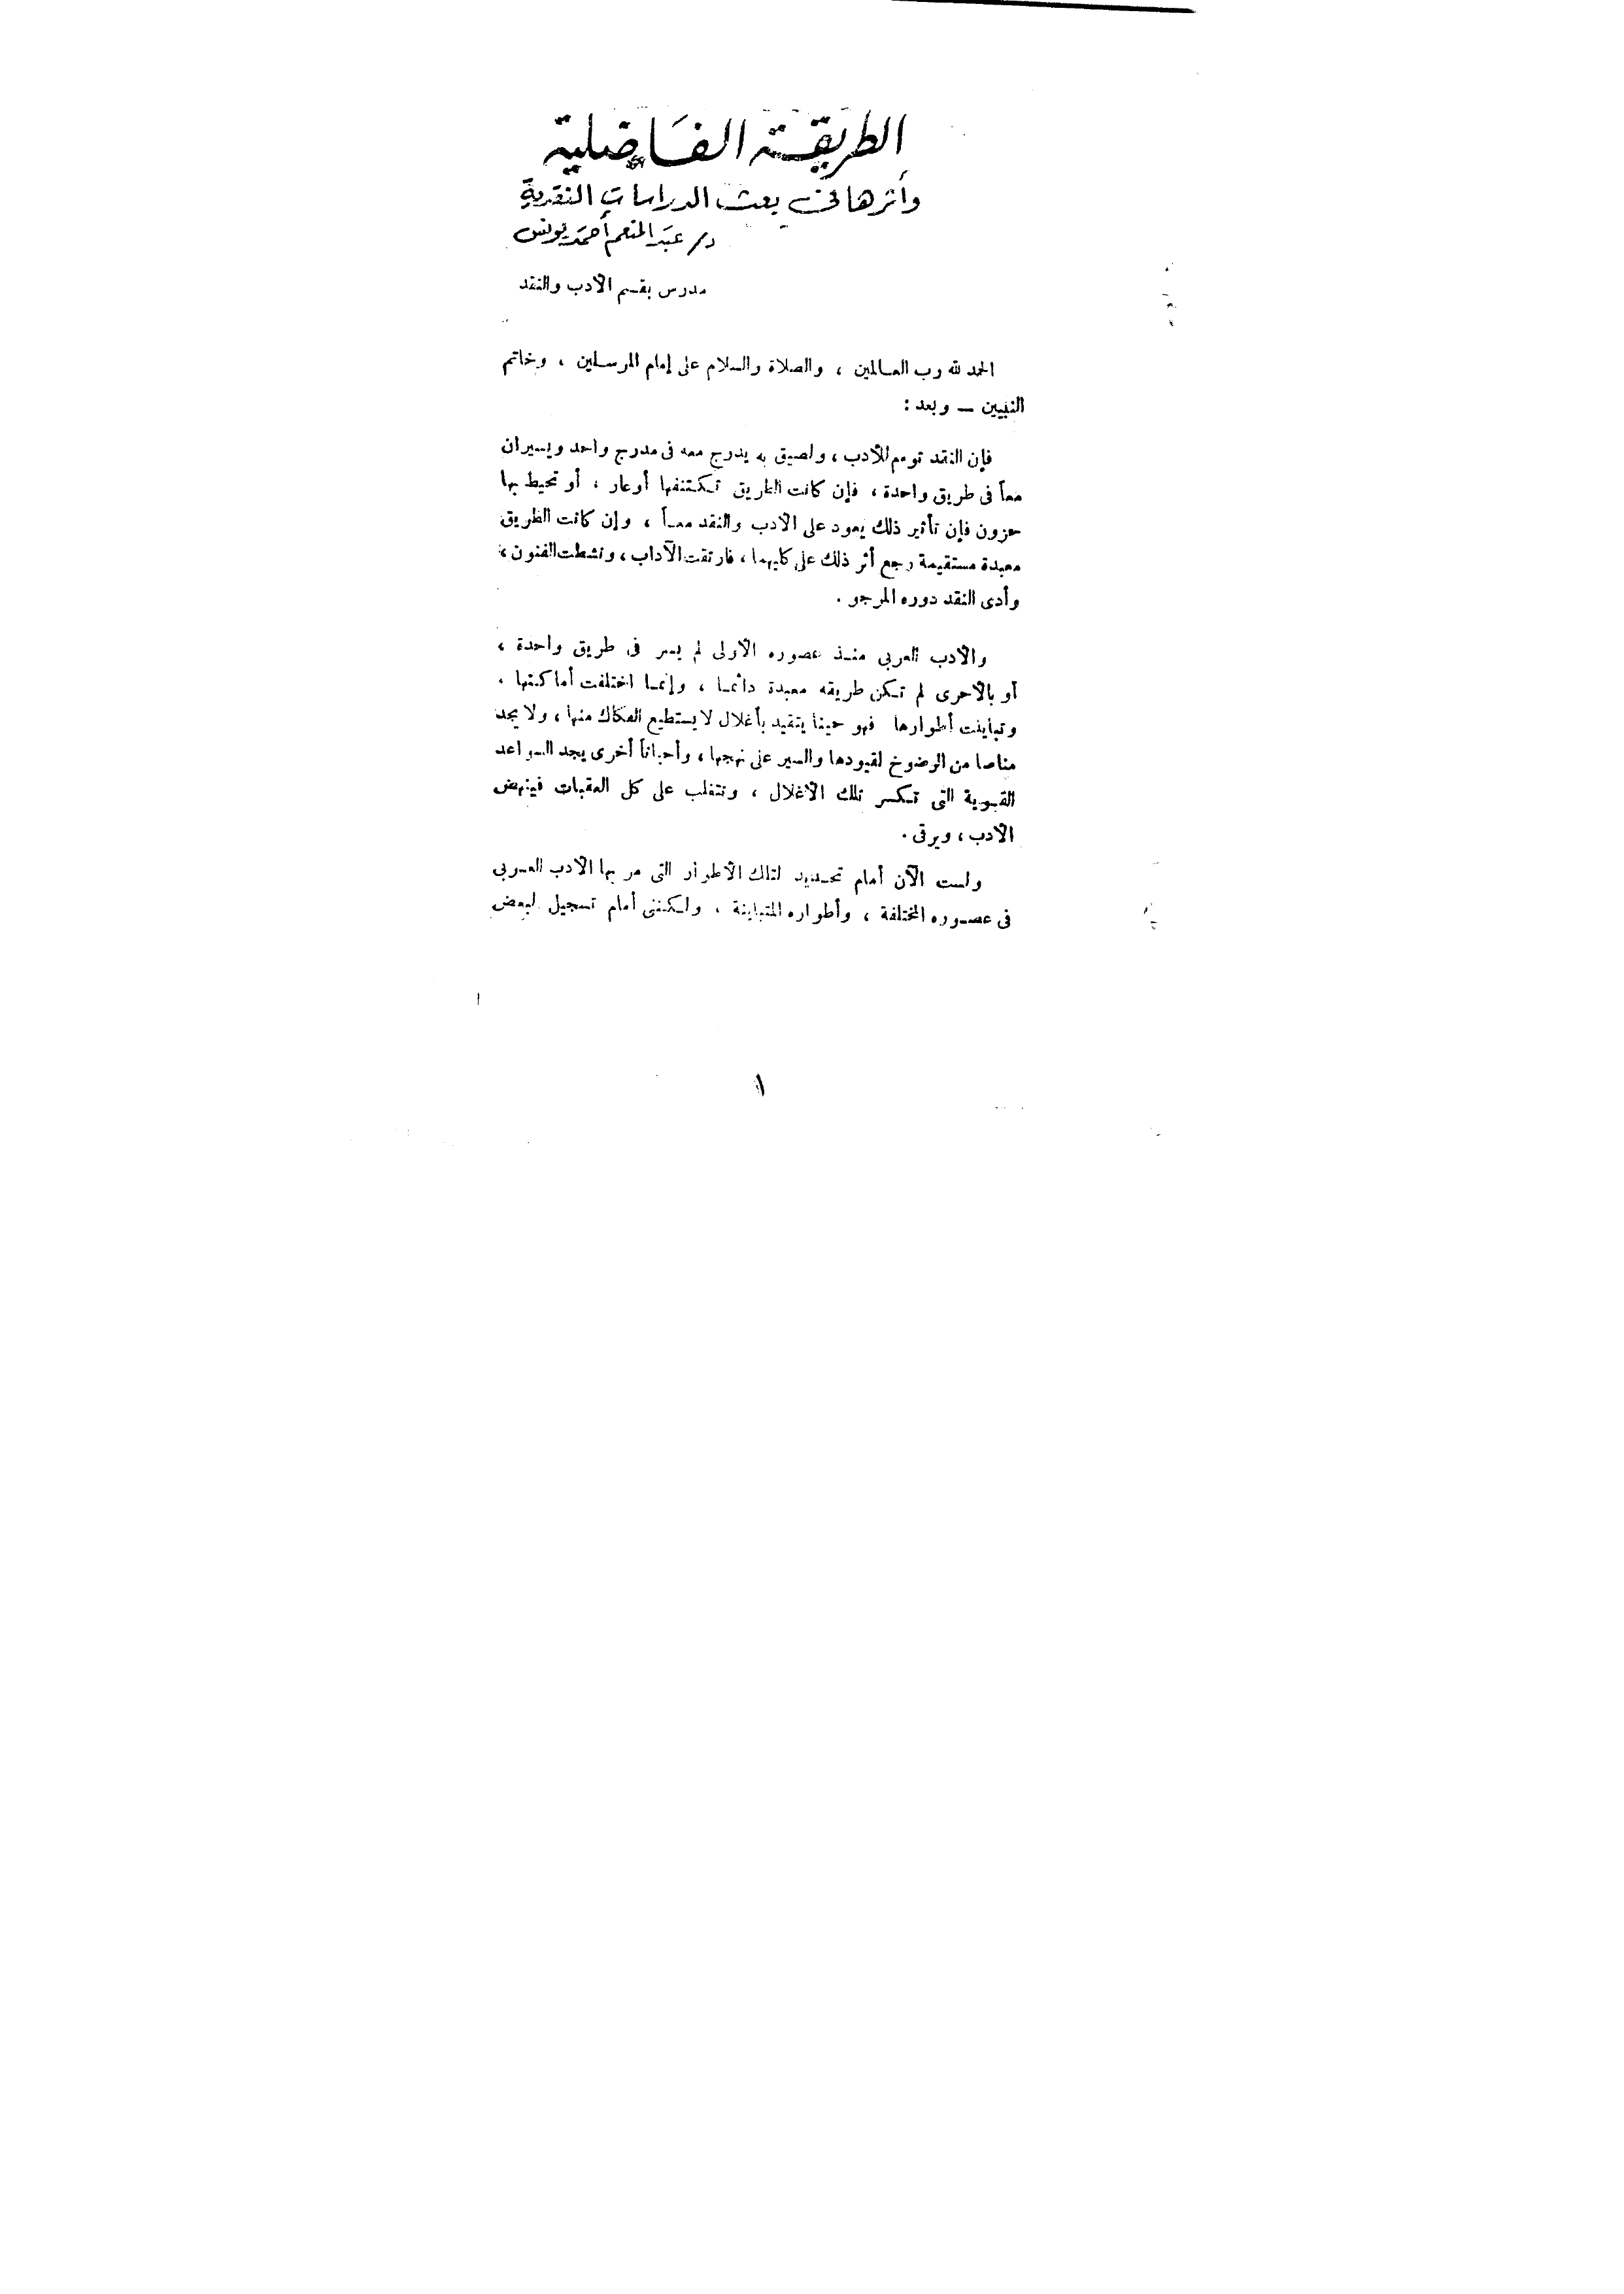 الطريقة الفاضلية
وأثرها في بعث الدراسات النقدية
د/ عبد المنعم أحمد يونس
مدرس بقسم الأدب والنقد
الحمد لله رب العـالمين ، والصلاة والسلام على إمام المرسـلين ، وخاتم
النبيين — وبعد :
فإن النقد توءم للأدب ، ولصيق به يدرج معه فى مدرج واحد ويسيران
معاً فى طريق واحدة ، فإن كانت الطريق تـكـتنفها أوعار ، أو تحيط بها
حزون فإن تأثير ذلك يعود على الأدب والنقد معـاً ، وإن كانت الطريق
معبدة مستقيمة رجع أثر ذلك على كليهما ، فارتقت الآداب ، ونشطت الفنون ،
وأدى النقد دوره المرجو .
والأدب العربى منـذ عصوره الأولى لم يسر فى طريق واحدة ،
أو بالأحرى لم تـكن طريقه معبدة دائمـا ، وإنمـا اختلفت أماكـنها ،
وتباينت أطوارها فهو حينا يتقيد بأغلال لا يستطيع الفكاك منها ، ولا يجد
مناصا من الرضوخ لقيودها والسير على نهجها ، وأحياناً أخرى يجد السواعد
القـوية التى تـكسر تلك الأغلال ، وتتغلب على كل العقبات فينهض
الأدب ، ويرقى .
ولست الآن أمام تحـديد لتلك الأطوار التى مر بها الأدب العـربى
فى عصـوره المختلفة ، وأطواره المتباينة ، ولـكـننى أمام تسجيل لبعض
١